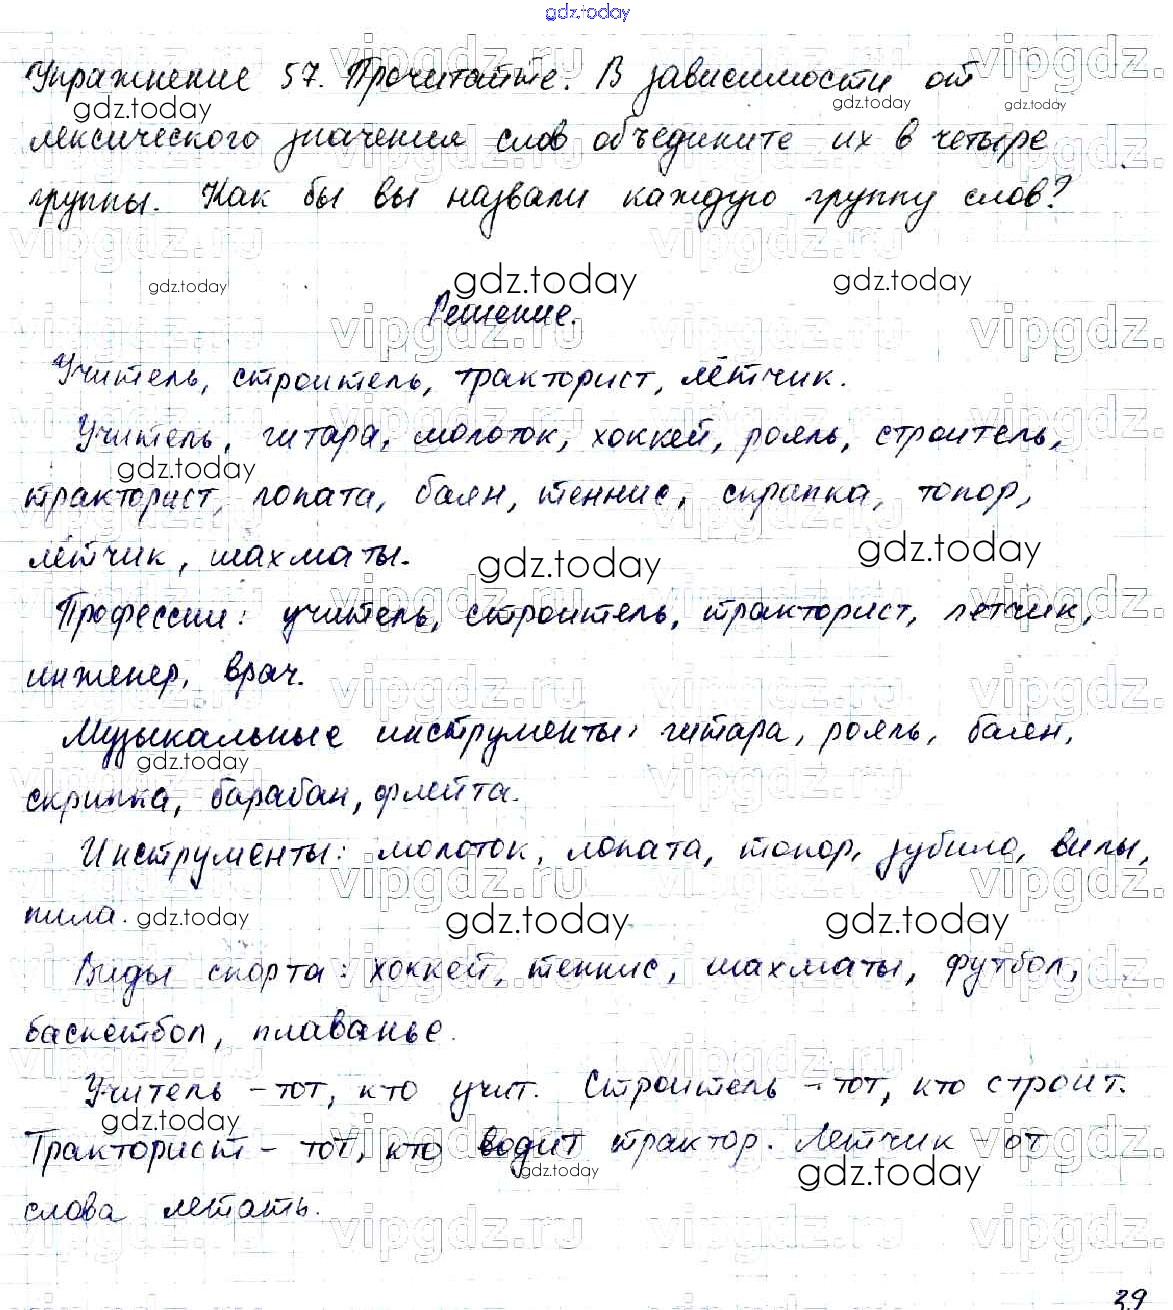 gdz.today
Упражнение 57. Прочитайте. В зависимости от
лексического значения слов объедините их в четыре
группы. Как бы вы назвали каждую группу слов?
Решение.
Учитель, строитель, тракторист, лётчик.
Учитель, гитара, молоток, хоккей, рояль, строитель,
тракторист, лопата, баян, теннис, скрипка, топор,
лётчик, шахматы.
Профессии: учитель, строитель, тракторист, летчик,
инженер, врач.
Музыкальные инструменты: гитара, рояль, баян,
скрипка, барабан, флейта.
Инструменты: молоток, лопата, топор, зубило, вилы,
пила.
Виды спорта: хоккей, теннис, шахматы, футбол,
баскетбол, плаванье.
Учитель – тот, кто учит. Строитель – тот, кто строит.
Тракторист – тот, кто водит трактор. Летчик – от
слова летать.
39